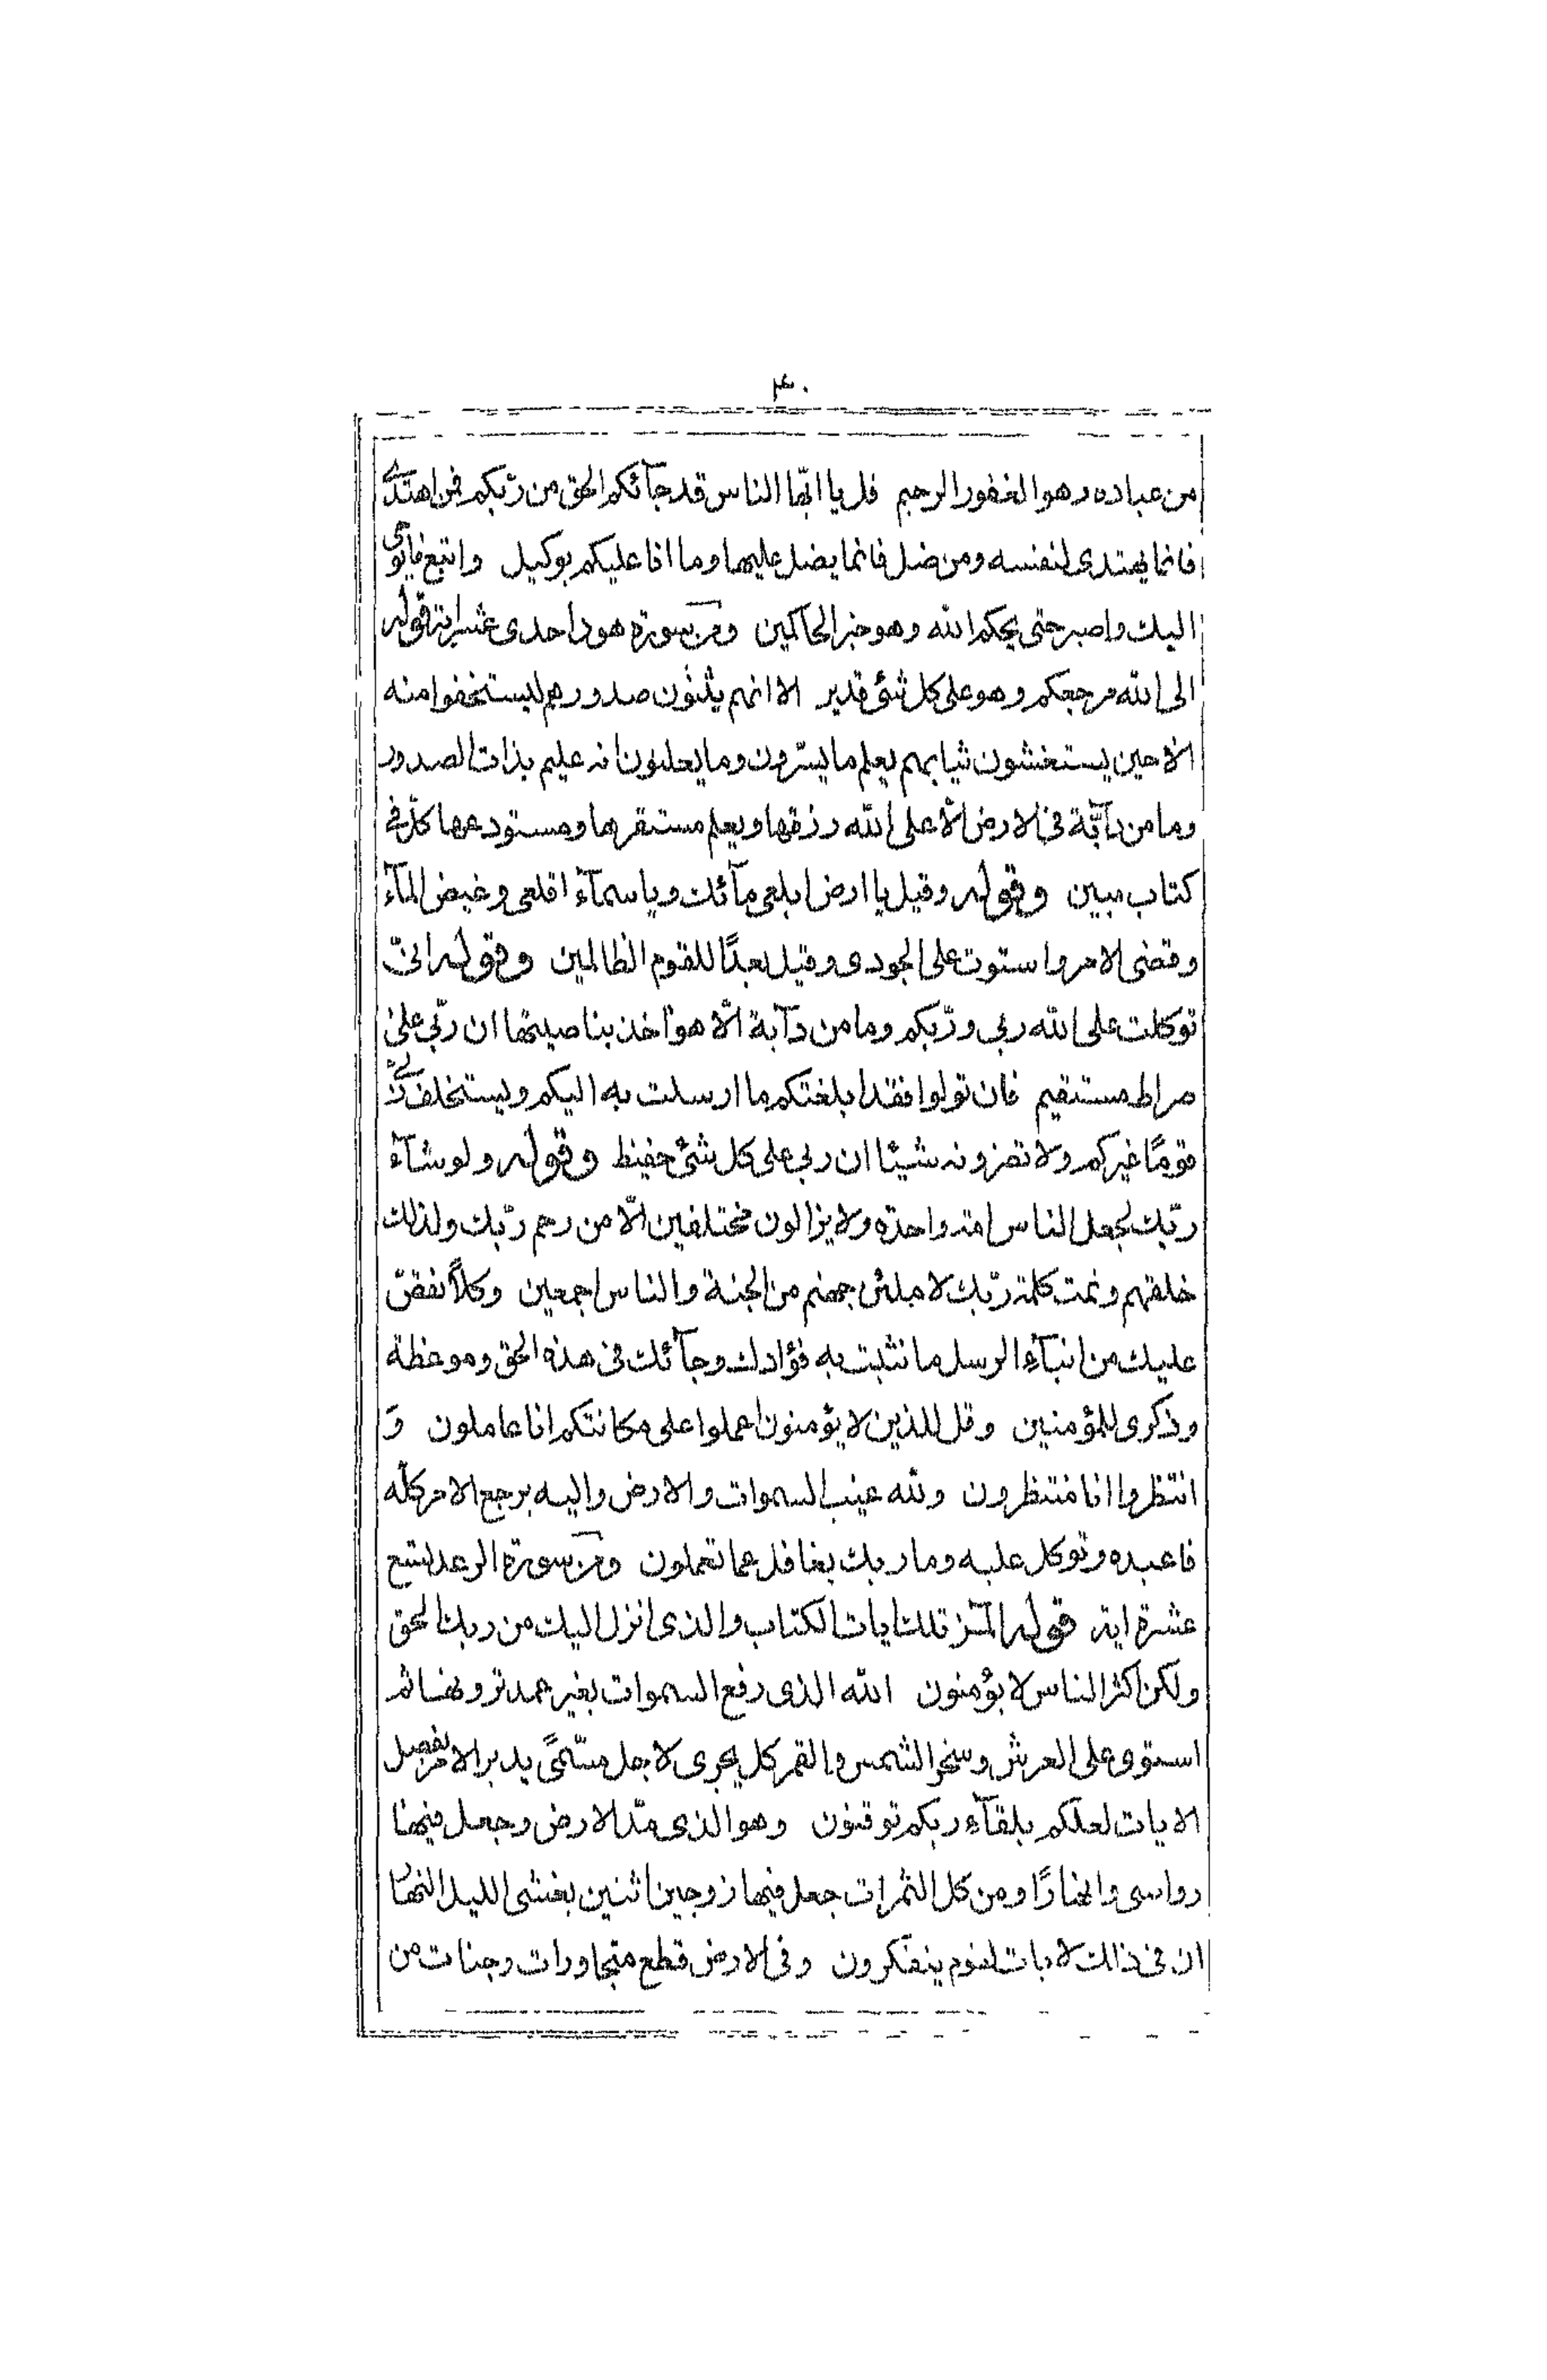 ۴۰
من عباده وهو الغفور الرحيم قل يا ايّها الناس قد جآئكم الحق من ربّكم فمن اهتدى
فانما يهتدى لنفسه ومن ضل فانما يضل عليها وما انا عليكم بوكيل واتبع ما يوحى
اليك واصبر حتى يحكم الله وهو خير الحاكمين ومن سورة هود احدى عشر اية قوله
الى الله مرجعكم وهو على كل شئ قدير الا انهم يثنون صدورهم ليستخفوا منه
الا حين يستغشون ثيابهم يعلم ما يسّرون وما يعلنون انه عليم بذات الصدور
وما من دآبّة فى الارض الّا على الله رزقها ويعلم مستقرها ومستودعها كلّ فى
كتاب مبين وقوله وقيل يا ارض ابلعى مآئك ويا سمآء اقلعى وغيض المآء
وقضى الامر واستوت على الجودى وقيل بعدًا للقوم الظالمين وقوله انىّ
توكلت على الله ربى وربّكم وما من دآبة الّا هو اخذ بناصيتها ان ربّى على
صراط مستقيم فان تولوا فقد ابلغتكم ما ارسلت به اليكم ويستخلف ربّى
قومًا غيركم ولا تضرونه شيئا ان ربى على كل شئ حفيظ وقوله ولو شآء
ربّك لجعل الناس امة واحدة ولا يزالون مختلفين الّا من رحم ربّك ولذلك
خلقهم وتمت كلمة ربّك لاملئن جهنم من الجنة والناس اجمعين وكلاً نقصّ
عليك من انبآء الرسل ما نثبت به فؤادك وجآئك فى هذه الحق وموعظة
وذكرى للمؤمنين وقل للذين لا يؤمنون اعملوا على مكانتكم انا عاملون وَ
انتظروا انا منتظرون ولله غيب السموات والارض واليه يرجع الامر كلّه
فاعبده وتوكل عليه وما ربك بغافل عما تعملون ومن سورة الرعد تسع
عشرة اية قوله المٓر تلك ايات الكتاب والذى انزل اليك من ربك الحق
ولكن اكثر الناس لا يؤمنون الله الذى رفع السموات بغير عمد ترونها ثم
استوى على العرش وسخر الشمس والقمر كل يجرى لاجل مسّمىً يدبر الامر يفصل
الايات لعلكم بلقآء ربكم توقنون وهو الذى مدّ الارض وجعل فيها
رواسى وانهارًا ومن كل الثمرات جعل فيها زوجين اثنين يغشى الليل النهار
ان فى ذلك لايات لقوم يتفكرون وفى الارض قطع متجاورات وجنات من